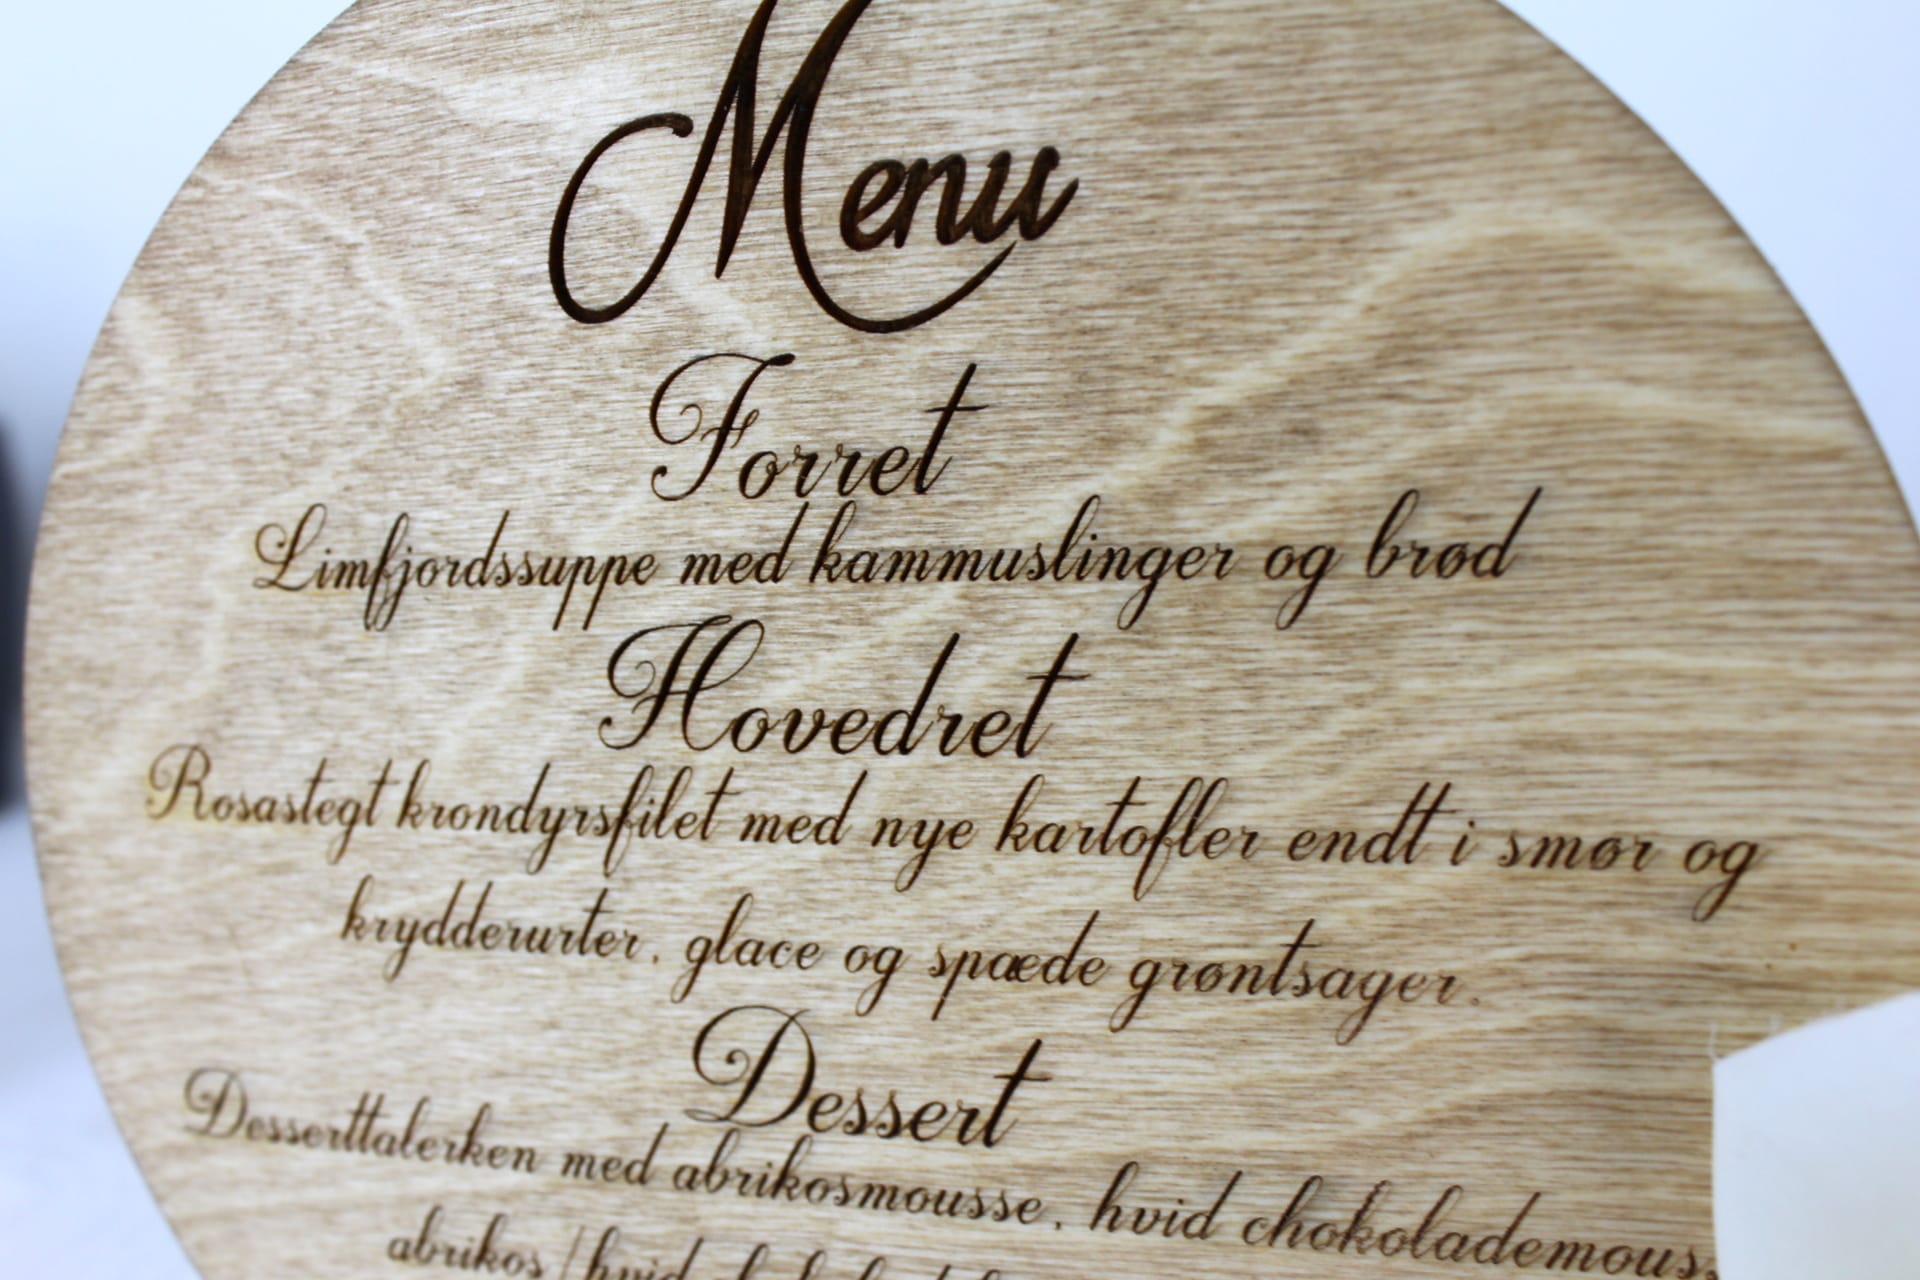 Menu
Forret
Limfjordssuppe med kammuslinger og brød
Hovedret
Rosastegt krondyrsfilet med nye kartofler endt i smør og
krydderurter, glace og spæde grøntsager.
Dessert
Desserttalerken med abrikosmousse, hvid chokolademous
abrikos / hvid